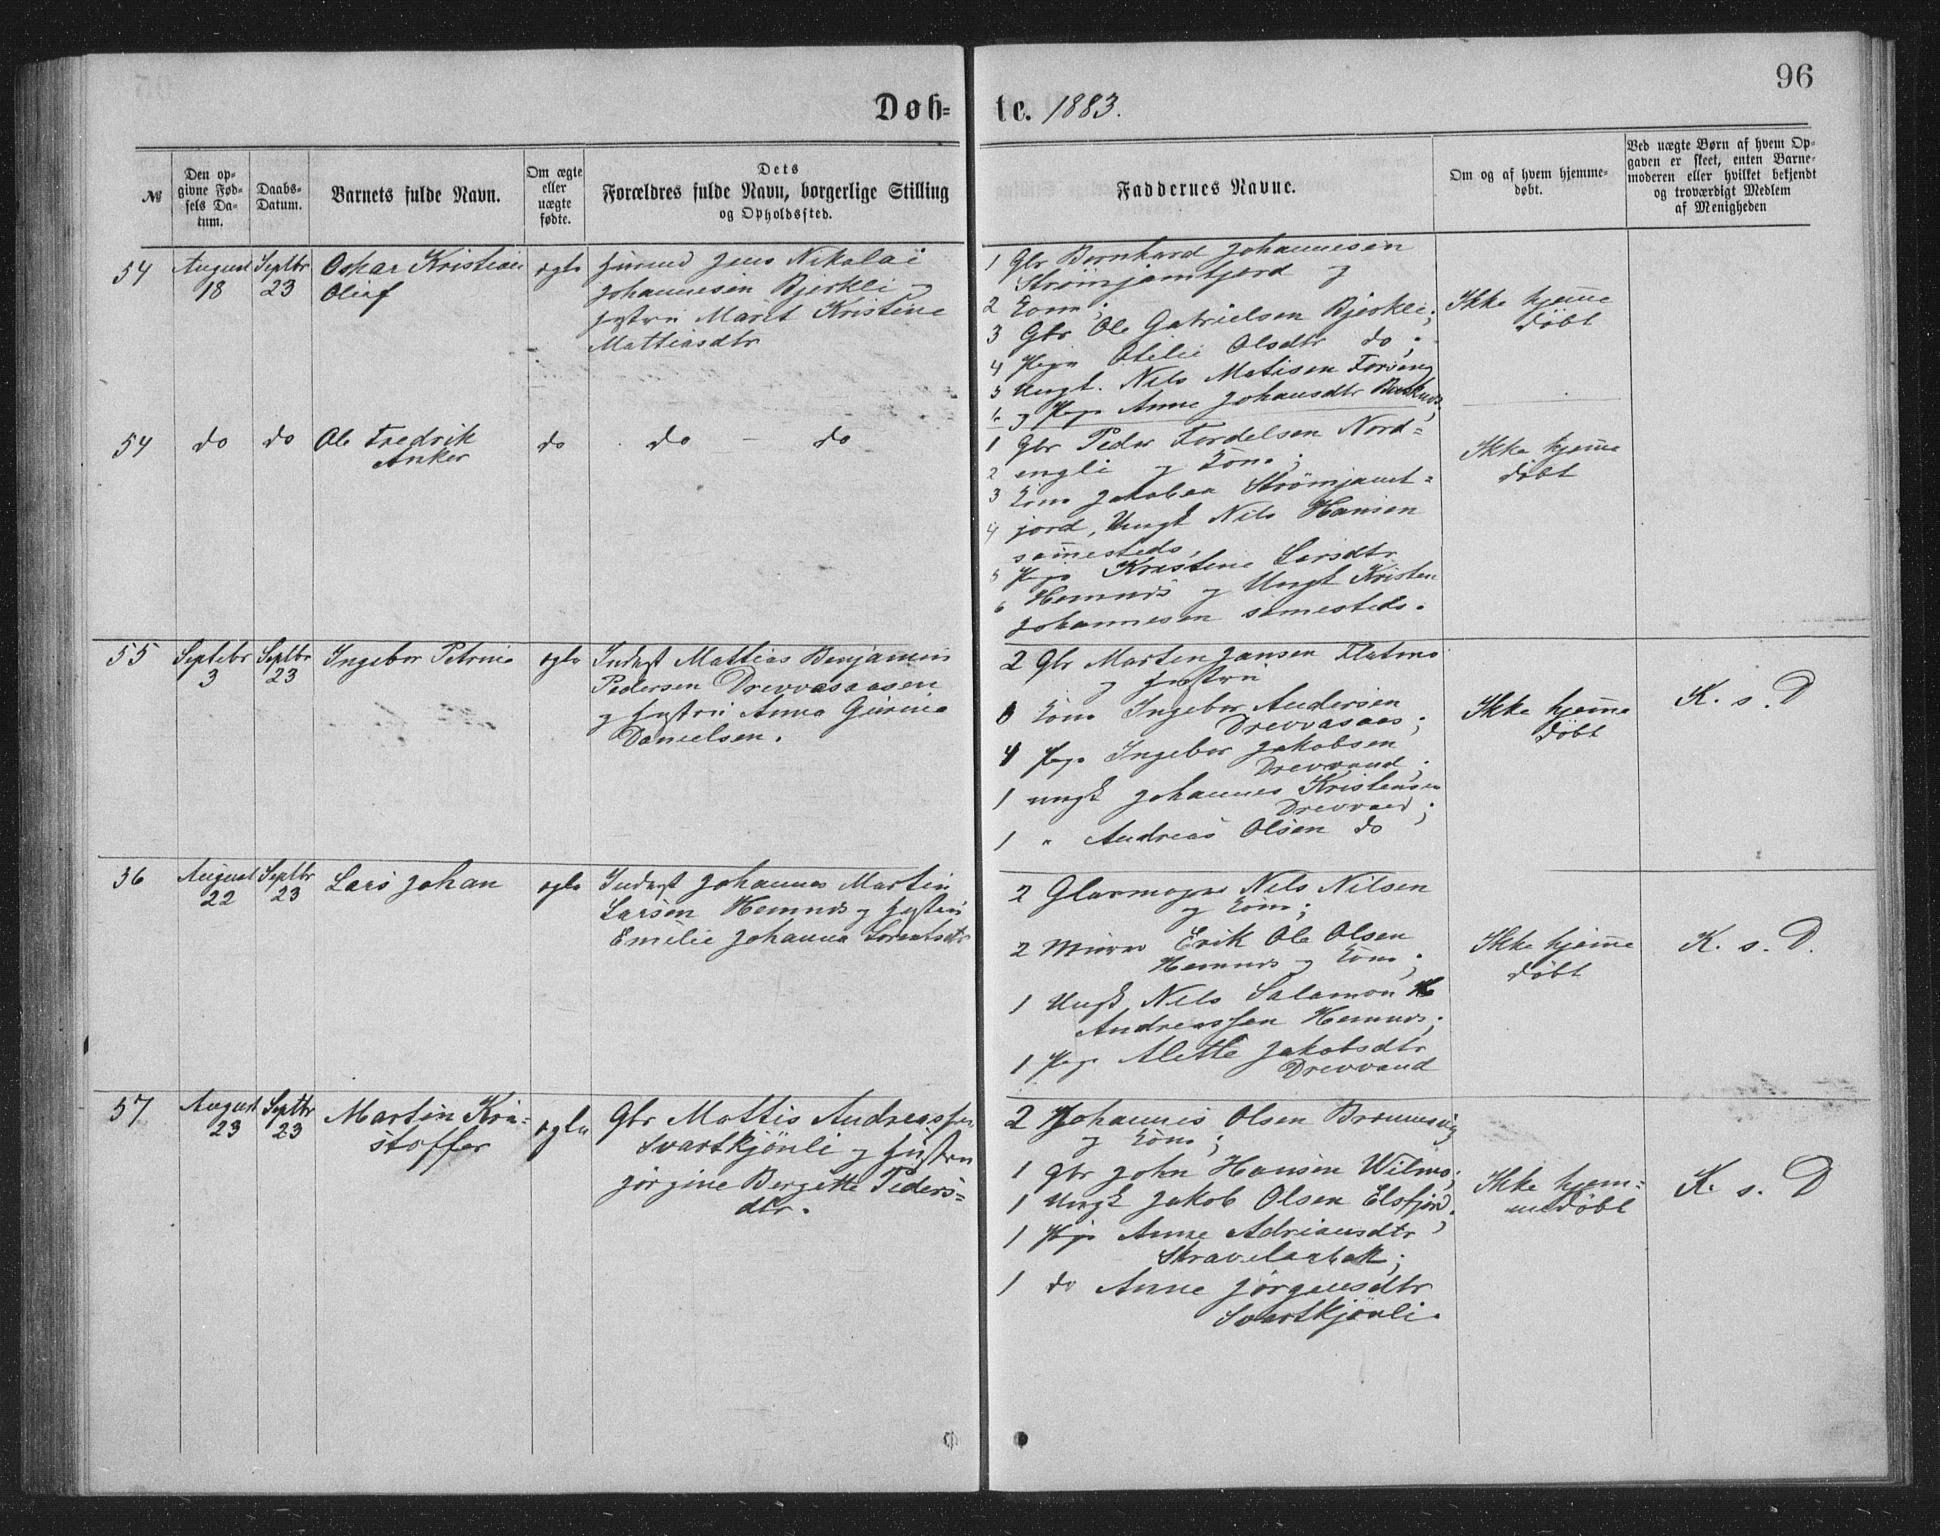 96
Døb= te. 1883.
№
Den op-
givne Fød-
sels Da-
tum.
Daabs-
Datum.
Barnets fulde Navn.
Om ægte
eller
uægte
fødte.
Dets
Forældres fulde Navn, borgerlige Stilling
og Opholdssted.
Faddernes Navne.
Om og af hvem hjemme-
døbt.
Ved uægte Børn af hvem Op-
gaven er skeet, enten Barne-
moderen eller hvilket bekjendt
og troværdigt Medlem
af Menigheden
54
August
18
Septbr
23
Oskar Kristian
Oluf
ægte
Jens Nikolai
Johannesen Bjerkli og
Hustru Marit Kristine
Mattiasdtr
1 Gbr Bernhard Johannesen
Strømjamtjord og
2 Kone;
3 Gbr Ole Gabrielsen Bjerkli;
4 Pige Otilie Olsdtr do;
5 Ungk. Nils Matisen Forseng
6 og Pige Anne Johansdtr
Ikke hjemme
døbt
54
do
do
Ole Fredrik
Anker
do
do - do
1 Gbr Peder Fordelsen Nord=
2 engli og Kone;
3 Kone Jakobea Strømjamt=
4 jord, Ungk Nils Hansen
sammesteds,
5 Pige Kristine Larsdtr
6 Hemnes og Ungk Kristen
Johannesen samesteds.
Ikke hjemme
døbt
55
Septebr
3
Septbr
23
Ingebor Petrine
ægte
Inderst Mattias Benjamin
Pedersen Drevvasaasen
og Hustru Anna Gurine
Danielsen.
2 Gbr Morten Jansen Flatmo
og Hustru
Kone Ingebor Andersen
Drevvasaas;
Pige Ingebor Jakobsen
Drevvand;
1 ungk Johannes Kristensen
Drevvand;
1 " Andreas Olsen do
Ikke hjemme
døbt
K. s. D
56
August
22
Septbr
23
Lars Johan
ægte
Inderst Johannes Martin
Larsen Hemnes og Hustru
Emelie Johanna Lorentsdtr
2 Glarmager Nils Nilsen
og Kone;
2 Murer Erik Ole Olsen
Hemnes og Kone;
1 Ungk Nils Salamon
Andreassen Hemnes;
1 Pige Alette Jakobsdtr
Drevvand
Ikke hjemme
døbt
K. s. D.
57
August
23
Septbr
23
Martin Kri=
stoffer
ægte
Gbr Mattis Andreassen
Svartkjönli og Hustru
Jørgine Bergitte Peders=
dtr.
2 Johannes Olsen Brennesvig
og Kone;
1 Gbr John Hansen Wilmo;
1 Ungk Jakob Olsen Elsfjord;
1 Pige Anne Adriansdtr
Skravelaabak;
1 do Anne Jørgensdtr
Svartkjönli.
Ikke hjem=
medøbt
K. s. D